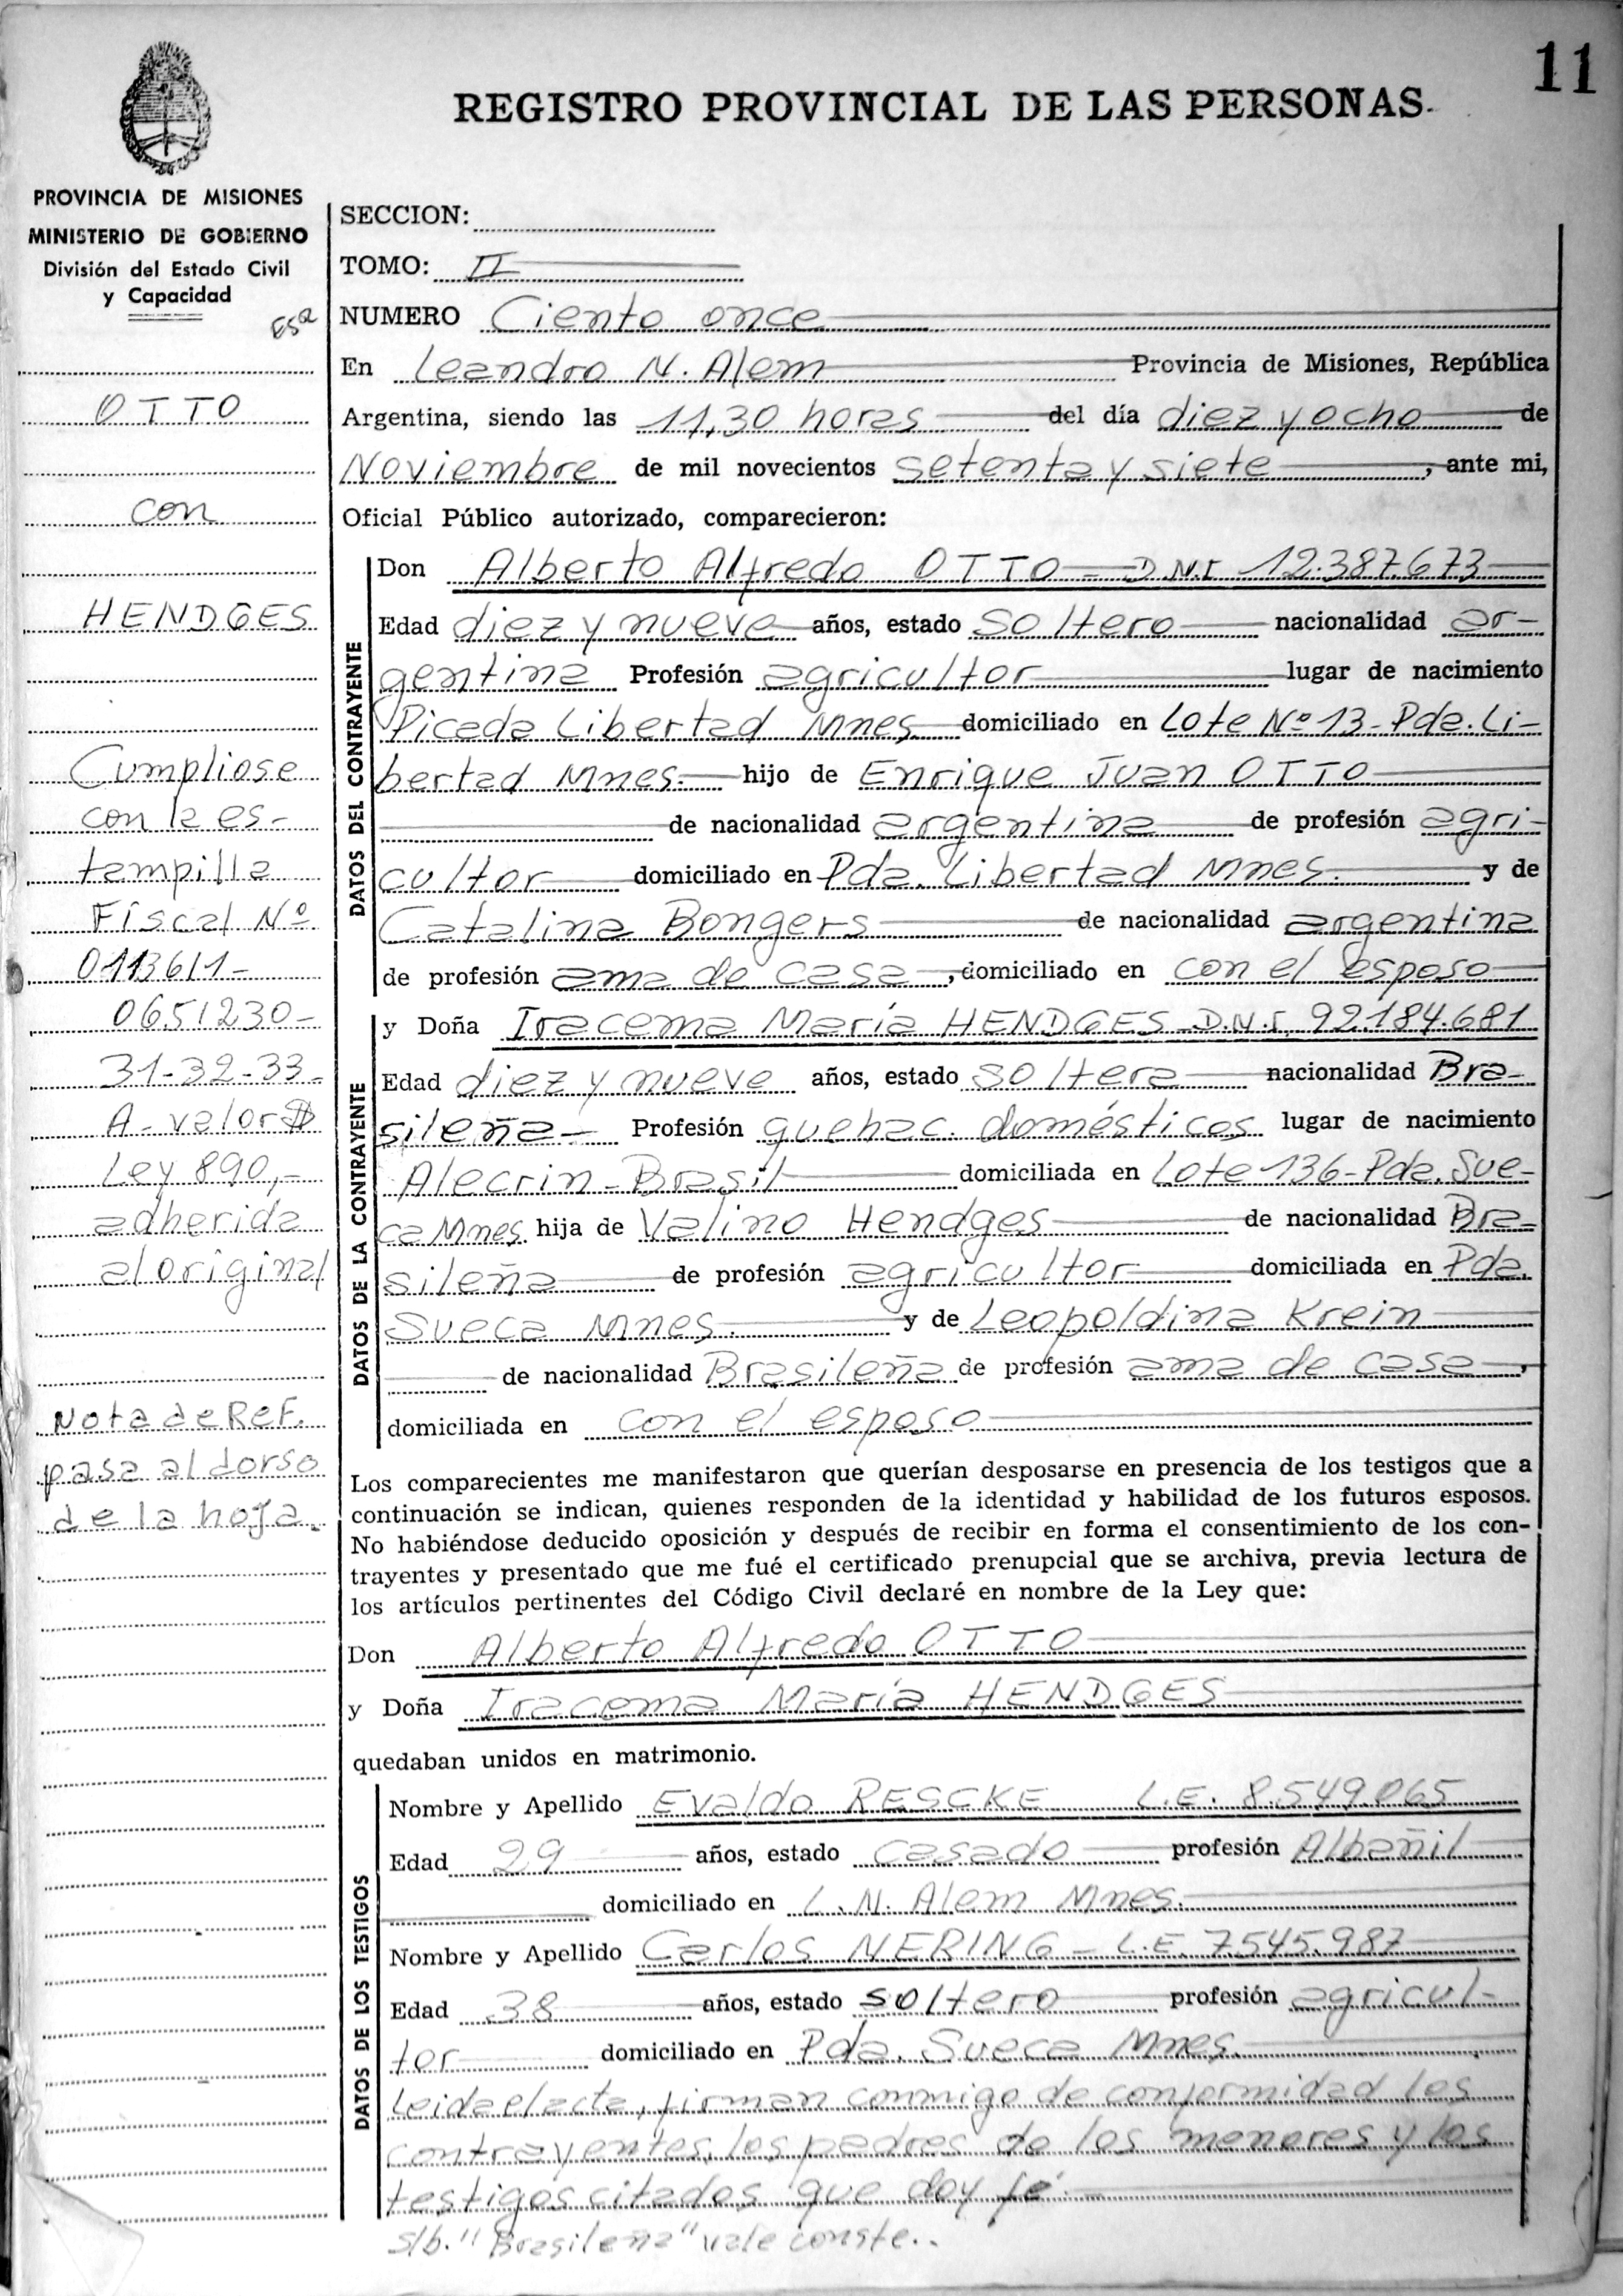 11
REGISTRO PROVINCIAL DE LAS PERSONAS.
PROVINCIA DE MISIONES
MINISTERIO DE GOBIERNO
División del Estado Civil
y Capacidad
OTTO
con
HENDGES
Cumpliose
con la es-
tampilla
Fiscal Nº
0113611-
0651230-
31-32-33-
A-valor $
Ley 890,-
adherida
al original
Nota de Ref.
pasa al dorso
de la hoja.
SECCION:
TOMO: II
NUMERO Ciento once
En Leandro N. Alem Provincia de Misiones, República
Argentina, siendo las 11,30 horas del día diez y ocho de
Noviembre de mil novecientos setenta y siete, ante mi,
Oficial Público autorizado, comparecieron:
DATOS DEL CONTRAYENTE
Don Alberto Alfredo OTTO - D.N.I 12.387.673
Edad diez y nueve años, estado soltero nacionalidad ar-
gentina Profesión agricultor lugar de nacimiento
Picada Libertad Mnes. domiciliado en Lote Nº 13 - Pda. Li-
bertad Mnes. hijo de Enrique Juan OTTO
de nacionalidad argentina de profesión agri-
cultor domiciliado en Pda. Libertad Mnes. y de
Catalina Bongers de nacionalidad argentina
de profesión ama de casa, domiciliado en con el esposo
DATOS DE LA CONTRAYENTE
y Doña Iracema María HENDGES - D.N.I. 92.184.681
Edad diez y nueve años, estado soltera nacionalidad Bra-
sileña- Profesión quehac. domésticos lugar de nacimiento
Alecrin - Brasil domiciliada en Lote 136 - Pda. Sue-
ca Mnes hija de Valino Hendges de nacionalidad Bra-
sileña de profesión agricultor domiciliada en Pda.
Sueca Mnes. y de Leopoldina Krein
de nacionalidad Brasileña de profesión ama de casa,
domiciliada en con el esposo
Los comparecientes me manifestaron que querían desposarse en presencia de los testigos que a
continuación se indican, quienes responden de la identidad y habilidad de los futuros esposos.
No habiéndose deducido oposición y después de recibir en forma el consentimiento de los con-
trayentes y presentado que me fué el certificado prenupcial que se archiva, previa lectura de
los artículos pertinentes del Código Civil declaré en nombre de la Ley que:
Don Alberto Alfredo OTTO
y Doña Iracema María HENDGES
quedaban unidos en matrimonio.
DATOS DE LOS TESTIGOS
Nombre y Apellido Evaldo RESCKE L.E. 8.549.065
Edad 29 años, estado casado profesión Albañil
domiciliado en L. N. Alem Mnes.
Nombre y Apellido Carlos NERING - L.E. 7.545.987
Edad 38 años, estado soltero profesión agricul-
tor domiciliado en Pda. Sueca Mnes.
Leida el acta, firman conmigo de conformidad los
contrayentes, los padres de los menores y los
testigos citados que doy fé.
S/b. "Brasileña" vale conste..